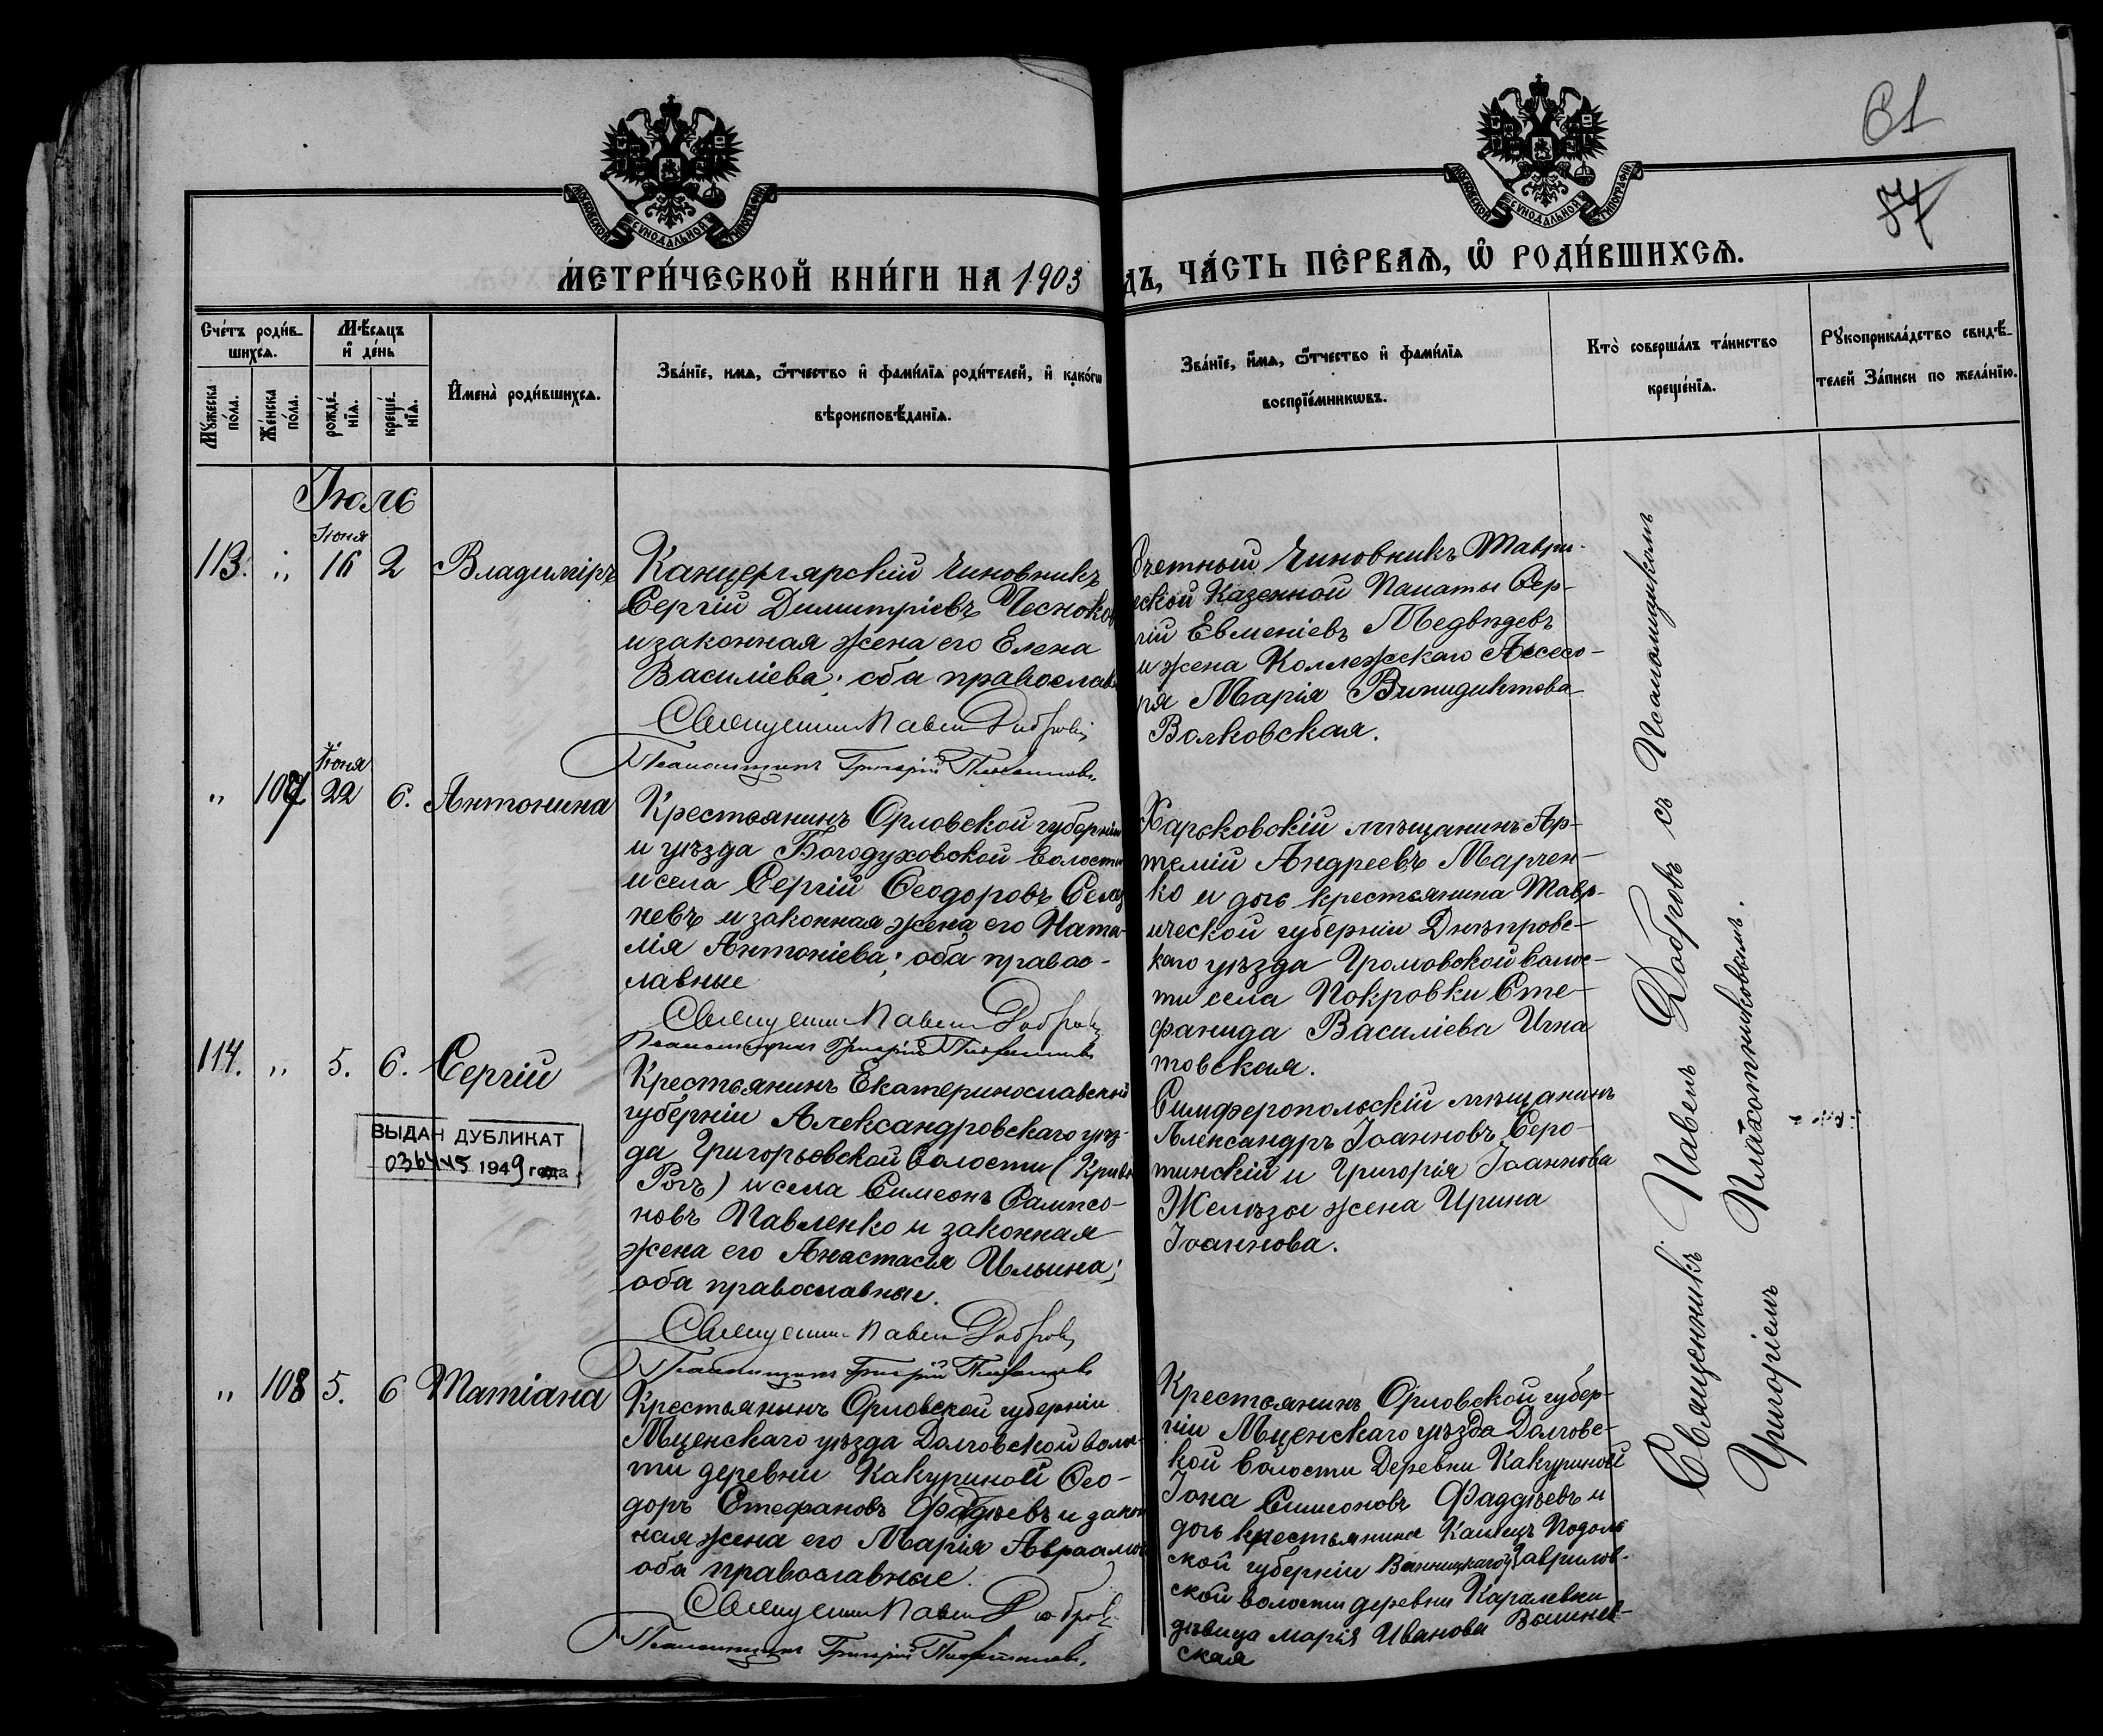 61
87
МОСКОВСКОЙ СѴНОДАЛЬНОЙ ТИПОГРАФІИ.
МОСКОВСКОЙ СѴНОДАЛЬНОЙ ТИПОГРАФІИ.
МЕТРИ́ЧЕСКОЙ КНИ́ГИ НА 1903
ДЪ, ЧА́СТЬ ПЕ́РВАѦ, Ѽ РОДИ́ВШИХСѦ.
Сче́тъ роди́в-
шихсѧ.
Мѣ́сѧцъ
и҆ де́нь
Мꙋ́жеска
по́ла.
Же́нска
по́ла.
рожде́-
нїѧ.
креще́-
нїѧ.
И҆мена̀ роди́вшихсѧ.
Зва́нїе, имѧ, ѻ҆́тчество и҆ фами́лїѧ роди́телей, и҆ како́гѡ
вѣроисповѣ́данїѧ.
Зва́нїе, и҆́мѧ, ѻ҆́тчество и҆ фами́лїѧ
воспрїе́мникѡвъ.
Кто̀ соверша́лъ та́инство
креще́нїѧ.
Рꙋкоприкла́дство свидѣ́-
телей за́писи по жела́нїю.
Іюль
Іюня
113. „ 16 2 Владиміръ
Канцелярскій чиновникъ
Сергій Димитріевъ Чесноков
и законная жена его Елена
Василіева; оба православ
Священник Павел Добров
Псаломщикъ Григорій Плахотников
четный чиновникъ Таври-
ской Казенной Палаты Сер-
гій Евменіевъ Медвѣдевъ
и жена Коллежскаго Ассесо-
ра Марія Виницдиктова
Волковская.
Іюня
„ 107 22 6. Антонина
Крестьянинъ Орловской губерніи
и уѣзда Богодуховской волости
и села Сергій Ѳеодоровъ Селез
невъ и законная жена его Ната-
лія Антоніева; оба правос-
лавные
Священник Павел Добров
Псаломщикъ Григорій Плахотников
Харьковскій мѣщанинъ Ар-
темій Андреевъ Марчен-
ко и дочь крестьянина Тавр-
ической губерніи Днѣпровс-
каго уѣзда Громовской волос-
ти села Покровки Сте-
фанида Василіева Игна
товская.
114. „ 5. 6. Сергій
ВЫДАН ДУБЛИКАТ
1949 года
Крестьянинъ Екатеринославской
губерніи Александровскаго уѣз-
да Григорьевской волости (Криво
Рогъ) и села Симеонъ Сампсо-
новъ Павленко и законная
жена его Анастасія Ильина;
оба православные.
Священник Павел Добров
Псаломщикъ Григорій Плахотников
Симферопольскій мѣщанинъ
Александръ Іоанновъ Серо-
тинскій и Григорія Іоаннова
Желѣзы жена Ирина
Іоаннова.
„ 108 5. 6 Татіана
Крестьянинъ Орловской губерніи
Мценскаго уѣзда Долговской волос-
ти деревни Какуриной Ѳео-
доръ Стефановъ Фаддѣевъ и закон
ная жена его Марія Авраамова
оба православные.
Священник Павел Добров
Псаломщикъ Григорій Плахотников
Крестьянинъ Орловской губер-
ніи Мценскаго уѣзда Долговс-
кой волости Деревни Какуриной
Іона Симеоновъ Фаддѣевъ и
дочь крестьянина Каменецъ Подоль
ской губерніи Винницкаго у Гаврилов-
ской волости деревни Каралевки
дѣвица Марія Иванова Вышнев-
ская
Священникъ Павелъ Добровъ съ Псаломщикомъ
Григоріемъ Плахотниковымъ.